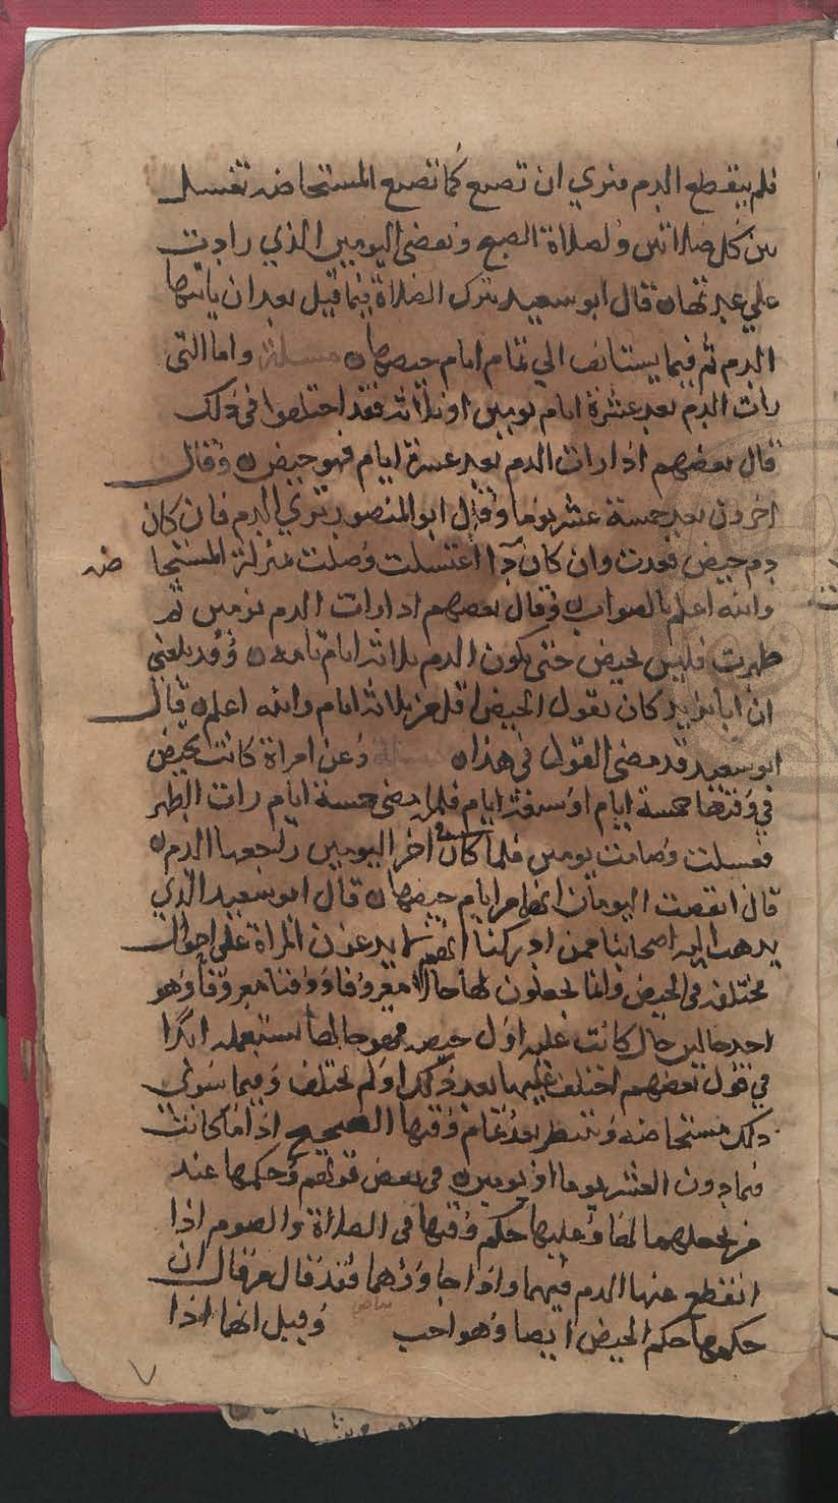 فلم ينقطع الدم فنري ان تصنع كما تصنع المستحاضه تغسل
بين كل صلاتين ولصلاة الصبح وتقضي اليومين الذي زادت
علي عدتها ه قال ابو سعيد تترك الصلاة فيما قيل بعد ان ياتيها
الدم ثم فيما يستانف الي تمام ايام حيضها ه مسئلة واما التى
رات الدم بعد عشرة ايام يومين او ثلاثة فقد اختلفوا في ذلك
قال بعضهم اذا رات الدم بعد عشرة ايام فهو حيض ه وقال
اخرون بعد خمسة عشر يوما وقال ابو المنصور تري الدم فان كان
دم حيض قعدت وان كان دما اغتسلت وصلت بمنزلة المستحا ضه
والله اعلم بالصواب ه وقال بعضهم اذا رات الدم يومين ثم
طهرت فليس بحيض حتى يكون الدم ثلاثة ايام تامه ه وقد بلغنى
ان ابا يزيد كان يقول الحيض اقل من ثلاثة ايام والله اعلم ه قال
ابو سعيد قد مضى القول في هذا ه مسئلة وعن امراة كانت تحيض
في وقتها خمسة ايام او ستة ايام فلما مضى خمسة ايام رات الطهر
فغسلت وصامت يومين فلما كان اخر اليومين راجعها الدم ه
قال انقضت اليومان انهما من ايام حيضها ه قال ابو سعيد الذي
يذهب اليه اصحابنا ممن ادركنا انهم لا يدعون المراة على احوال
مختلفه في الحيض وانما يجعلون لها حالا معروفا ووقتا معروفا وهو
احد حالين حال كانت عليه اول حيض فهو حالها تستعمله ابدا
في قول بعضهم اختلف عليها بعد ذلك او لم يختلف وفيما سوى
ذلك مستحاضه وتنتظر بعد تمام وقتها الصحيح اذا ما كانت
فما دون العشر يوما او يومين ه في بعض قولهم وحكمها عند
من يجعلهما لها وعليها حكم وقتها في الصلاة والصوم اذا
انقطع عنها الدم فيهما واذا جاوزهما فقد قال من قال ان
حكمهما حكم الحيض ايضا وهو احب وقيل انها اذا
٧